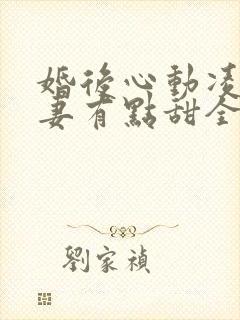 婚後心動凌
妻有點甜全
劉家禎